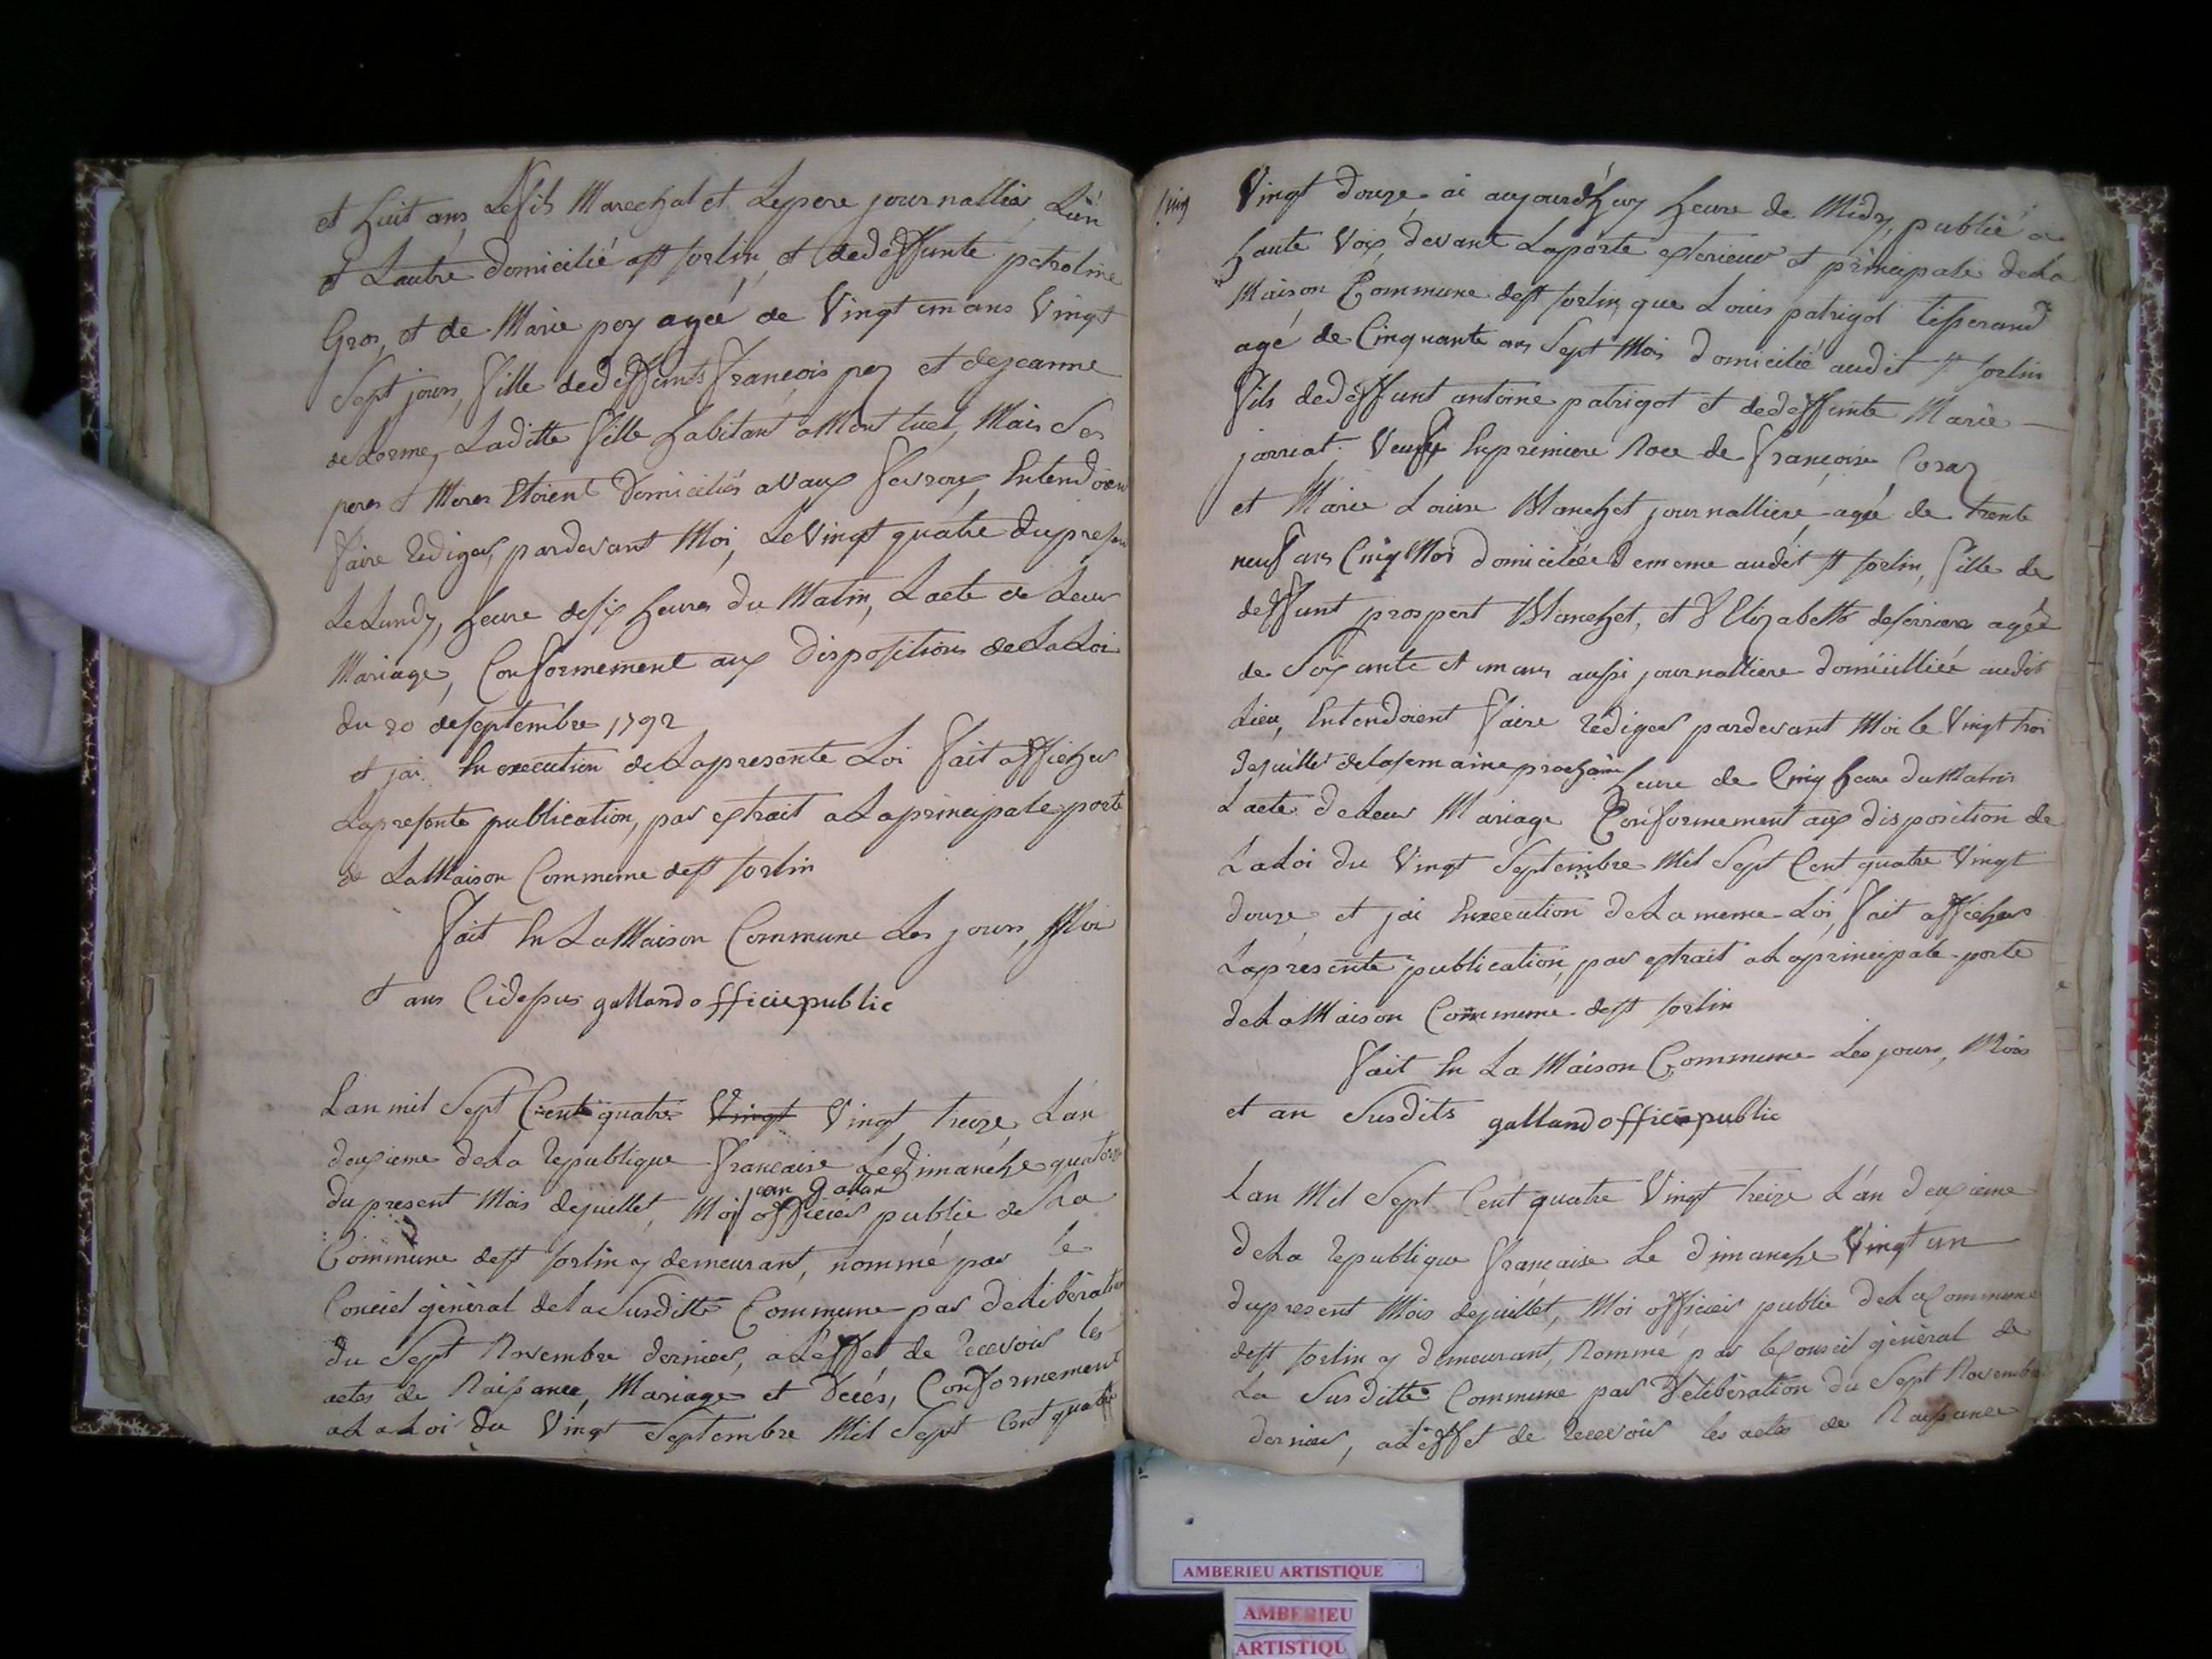 et huit ans, Le fils Marechal et Le pere journallier, L'un
et Lautre domicilié a St Sorlin, et de deffunte petroline
Gros, et de Marie pey agée de Vingt un ans Vingt
Sept jours, fille de deffunts françois pey et de jeanne
de Lorme, Laditte fille habitant a Mont luel, Mais Ses
peres et Meres Etoient domiciliés a Vaux fevroux, Entendoien
faire rediger, pardevant Moi, Le Vingt quatre du presen
Le Lundy, heure de six heures du Matin, Lacte de Leur
Mariage, Conformement aux Dispositions de La Loi
du 20 de septembre 1792
et jai En execution de La presente Loi fait afficher
La presente publication, par extrait a La principale porte
de La Maison Commune de St Sorlin
fait En La Maison Commune Les jours, Moi
et ans Cidessus galland officie public
Lan mil Sept Cent quatre Vingt Vingt treize, Lan
deuxieme de La republique francaise Le dimanche quatorz
jean Gallan
du present Mois de juillet, Moi officier public de La
Commune de St Sorlin y demeurant, nommé par le
Conciel général de la Susditte Commune par deliberation
du Sept Novembre dernier, a L'effet de recevoir les
actes de Naissance, Mariage et décés, Conformement
a La Loi du Vingt Septembre Mil Sept Cent quatre
Vingt douze ai aujourd'huy heure de Midy, publié a
haute Voix, devant La porte exterieur et principale de La
Maison Commune de St Sorlin, que Louis patrigot tisserand
agé de Cinquante ans Sept Mois domicilié audit St Sorlin
fils de deffunt antoine patrigot et de deffunte Marie
jarriat. Veuf En premiere Noce de françoise Coraz
et Marie Louise Blanchet journalliere agée de trente
neuf ans Cinq Mois domiciliée de meme audit St Sorlin, fille de
deffunt prospert Blanchet, et d'Elizabeth deferriere agée
de Soixante et un ans aussi journalliere domicilliée audit
Lieu, Entendoient faire rediger pardevant Moi le Vingt troi
de juillet de La semaine prochaine heure de Cinq heure du Matin
Lacte de Leur Mariage Conformement aux disposition de
La Loi du Vingt Septembre Mil Sept Cent quatre Vingt
douze, et jai En execution de La meme Loi, fait afficher
La presente publication, par extrait a La principale porte
de La Maison Commune de St Sorlin
fait En La Maison Commune Les jours, Mois
et an Susdits galland officie public
Lan Mil Sept Cent quatre Vingt treize L'an deuxieme
de La republique francaise Le dimanche Vingt un
du present Mois de juillet, Moi officier public de La Commune
de St Sorlin y demeurant, Nommé par le Conseil général de
La Susditte Commune par Délibération du Sept Novembre
dernier, a L'effet de recevoir les actes de Naissance
AMBERIEU ARTISTIQUE
AMBERIEU
ARTISTIQU